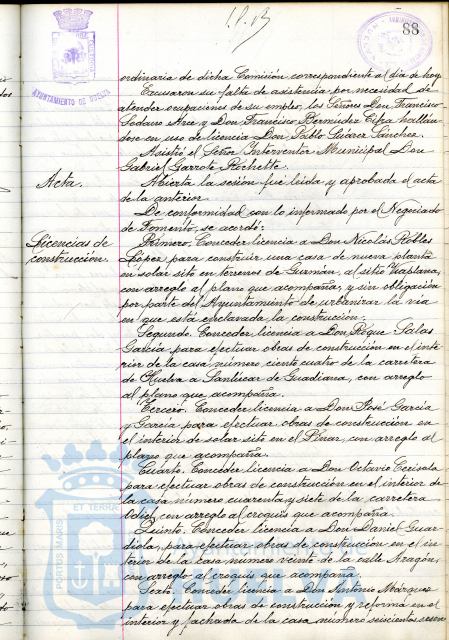 88
AYUNTAMIENTO DE HUELVA
ordinaria de dicha Comisión, correspondiente al día de hoy
Excusaron su falta de asistencia por necesidad de
atender ocupaciones de su empleo, los Señores Don Francisco
Sodauro Arce y Don Francisco Bermúdez Cifra, hallán-
dose en uso de licencia Don Pablo Suárez Sánchez.
Asistió el Señor Interventor Municipal Don
Gabriel Garrote Rochette.
Acta.
Abierta la sesión fué leida y aprobada el acta
de la anterior.
De conformidad con lo informado por el Negociado
de Fomento, se acordó:
Licencias de
construcción.
Primero. Conceder licencia a Don Nicolás Robles
López para construir una casa de nueva planta
en solar sito en terrenos de Guzmán, al sitio
con arreglo al plano que acompaña, y sin obligación
por parte del Ayuntamiento de urbanizar la vía
en que está enclavada la construcción.
Segundo. Conceder licencia a Don Roque Salas
García para efectuar obras de construcción en el inte-
rior de la casa número ciento cuatro de la carretera
de Huelva a Sanlucar de Guadiana, con arreglo
al plano que acompaña.
Tercero. Conceder licencia a Don José García
y García para efectuar obras de construcción en
el interior de solar sito en el Pinar, con arreglo al
plano que acompaña.
Cuarto. Conceder licencia a Don Octavio
para efectuar obras de construcción en el interior de
la casa número cuarenta y siete de la carretera
Odiel, con arreglo al croquis que acompaña.
Quinto. Conceder licencia a Don Daniel Guar-
diola, para efectuar obras de construcción en el in-
terior de la casa número veinte de la calle Aragón,
con arreglo al croquis que acompaña.
Sexto. Conceder licencia a Don Antonio Márquez
para efectuar obras de construcción y reforma en el
interior y fachada de la casa número seiscientos
PORTUS MARIS
ET TERRAE